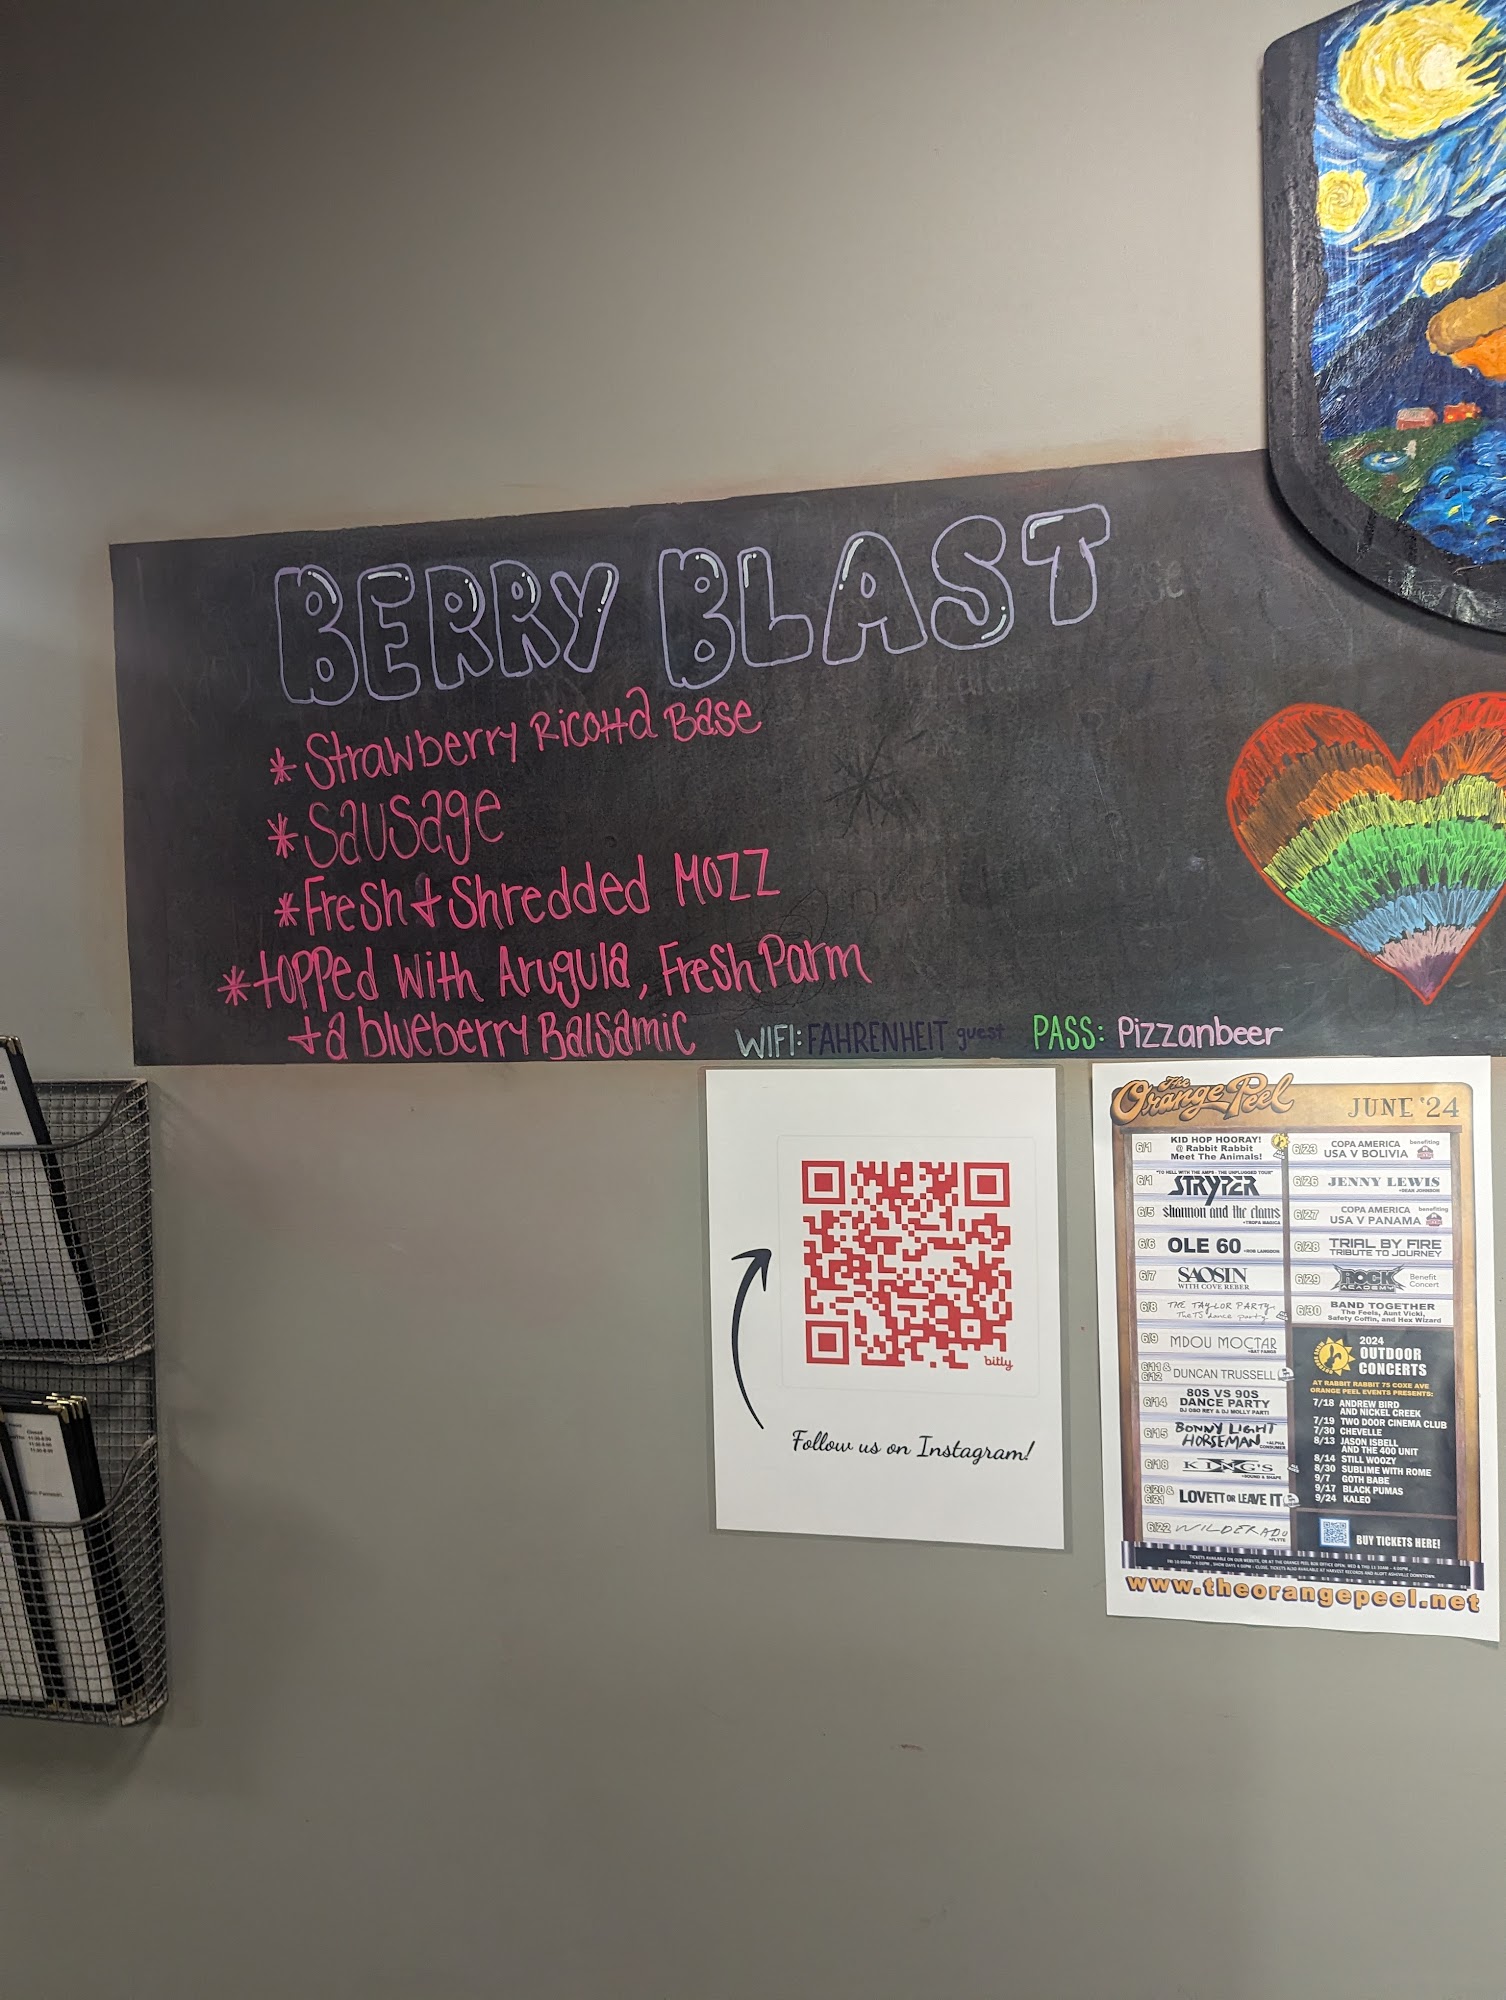 BERRY BLAST
* Strawberry Ricotta Base
* Sausage
* Fresh + Shredded MOZZ
* topped with Arugula, Fresh Parm
+ a blueberry Balsamic
WIFI: FAHRENHEIT guest PASS: Pizzanbeer
bitly
Follow us on Instagram!
The Orange Peel
JUNE '24
6/1 KID HOP HOORAY!
@ Rabbit Rabbit
Meet The Animals!
"TO HELL WITH THE AMPS - THE UNPLUGGED TOUR"
6/1 STRYPER
6/5 shannon and the clams
+TROPA MAGICA
6/6 OLE 60 +ROB LANGDON
6/7 SAOSIN
WITH COVE REBER
6/8 THE TAYLOR PARTY:
The TS dance party
6/9 MDOU MOCTAR
6/11 & 6/12 DUNCAN TRUSSELL
6/14 80S VS 90S
DANCE PARTY
DJ OSO REY & DJ MOLLY PARTI
6/15 BONNY LIGHT
HORSEMAN
6/18 KING'S X
+SOUND & SHAPE
6/20 & 6/21 LOVETT OR LEAVE IT
6/22 WILDERADO
+FLYTE
6/23 COPA AMERICA
USA V BOLIVIA
benefiting
6/26 JENNY LEWIS
6/27 COPA AMERICA
USA V PANAMA
benefiting
6/28 TRIAL BY FIRE
TRIBUTE TO JOURNEY
6/29 ROCK ACADEMY
Benefit Concert
6/30 BAND TOGETHER
The Feels, Aunt Vicki,
Safety Coffin, and Hex Wizard
2024
OUTDOOR
CONCERTS
AT RABBIT RABBIT 75 COXE AVE
ORANGE PEEL EVENTS PRESENTS:
7/18 ANDREW BIRD
AND NICKEL CREEK
7/19 TWO DOOR CINEMA CLUB
7/30 CHEVELLE
8/13 JASON ISBELL
AND THE 400 UNIT
8/14 STILL WOOZY
8/30 SUBLIME WITH ROME
9/7 GOTH BABE
9/17 BLACK PUMAS
9/24 KALEO
BUY TICKETS HERE!
www.theorangepeel.net